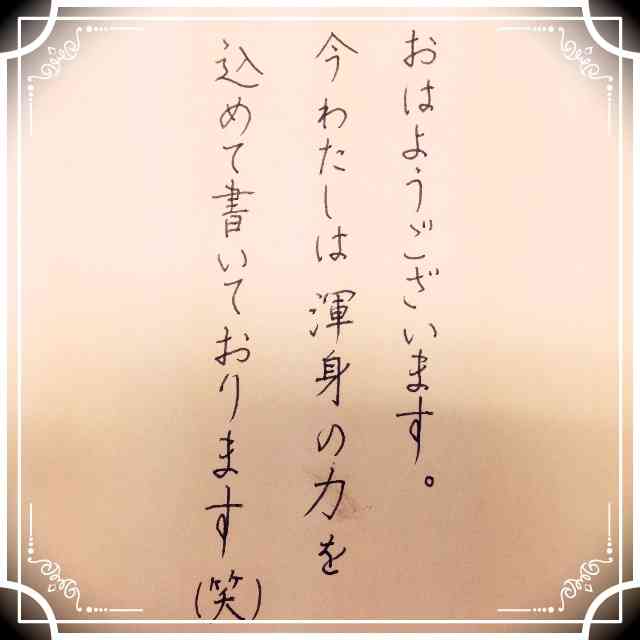 おはようございます。
今わたしは渾身の力を
込めて書いております(笑)